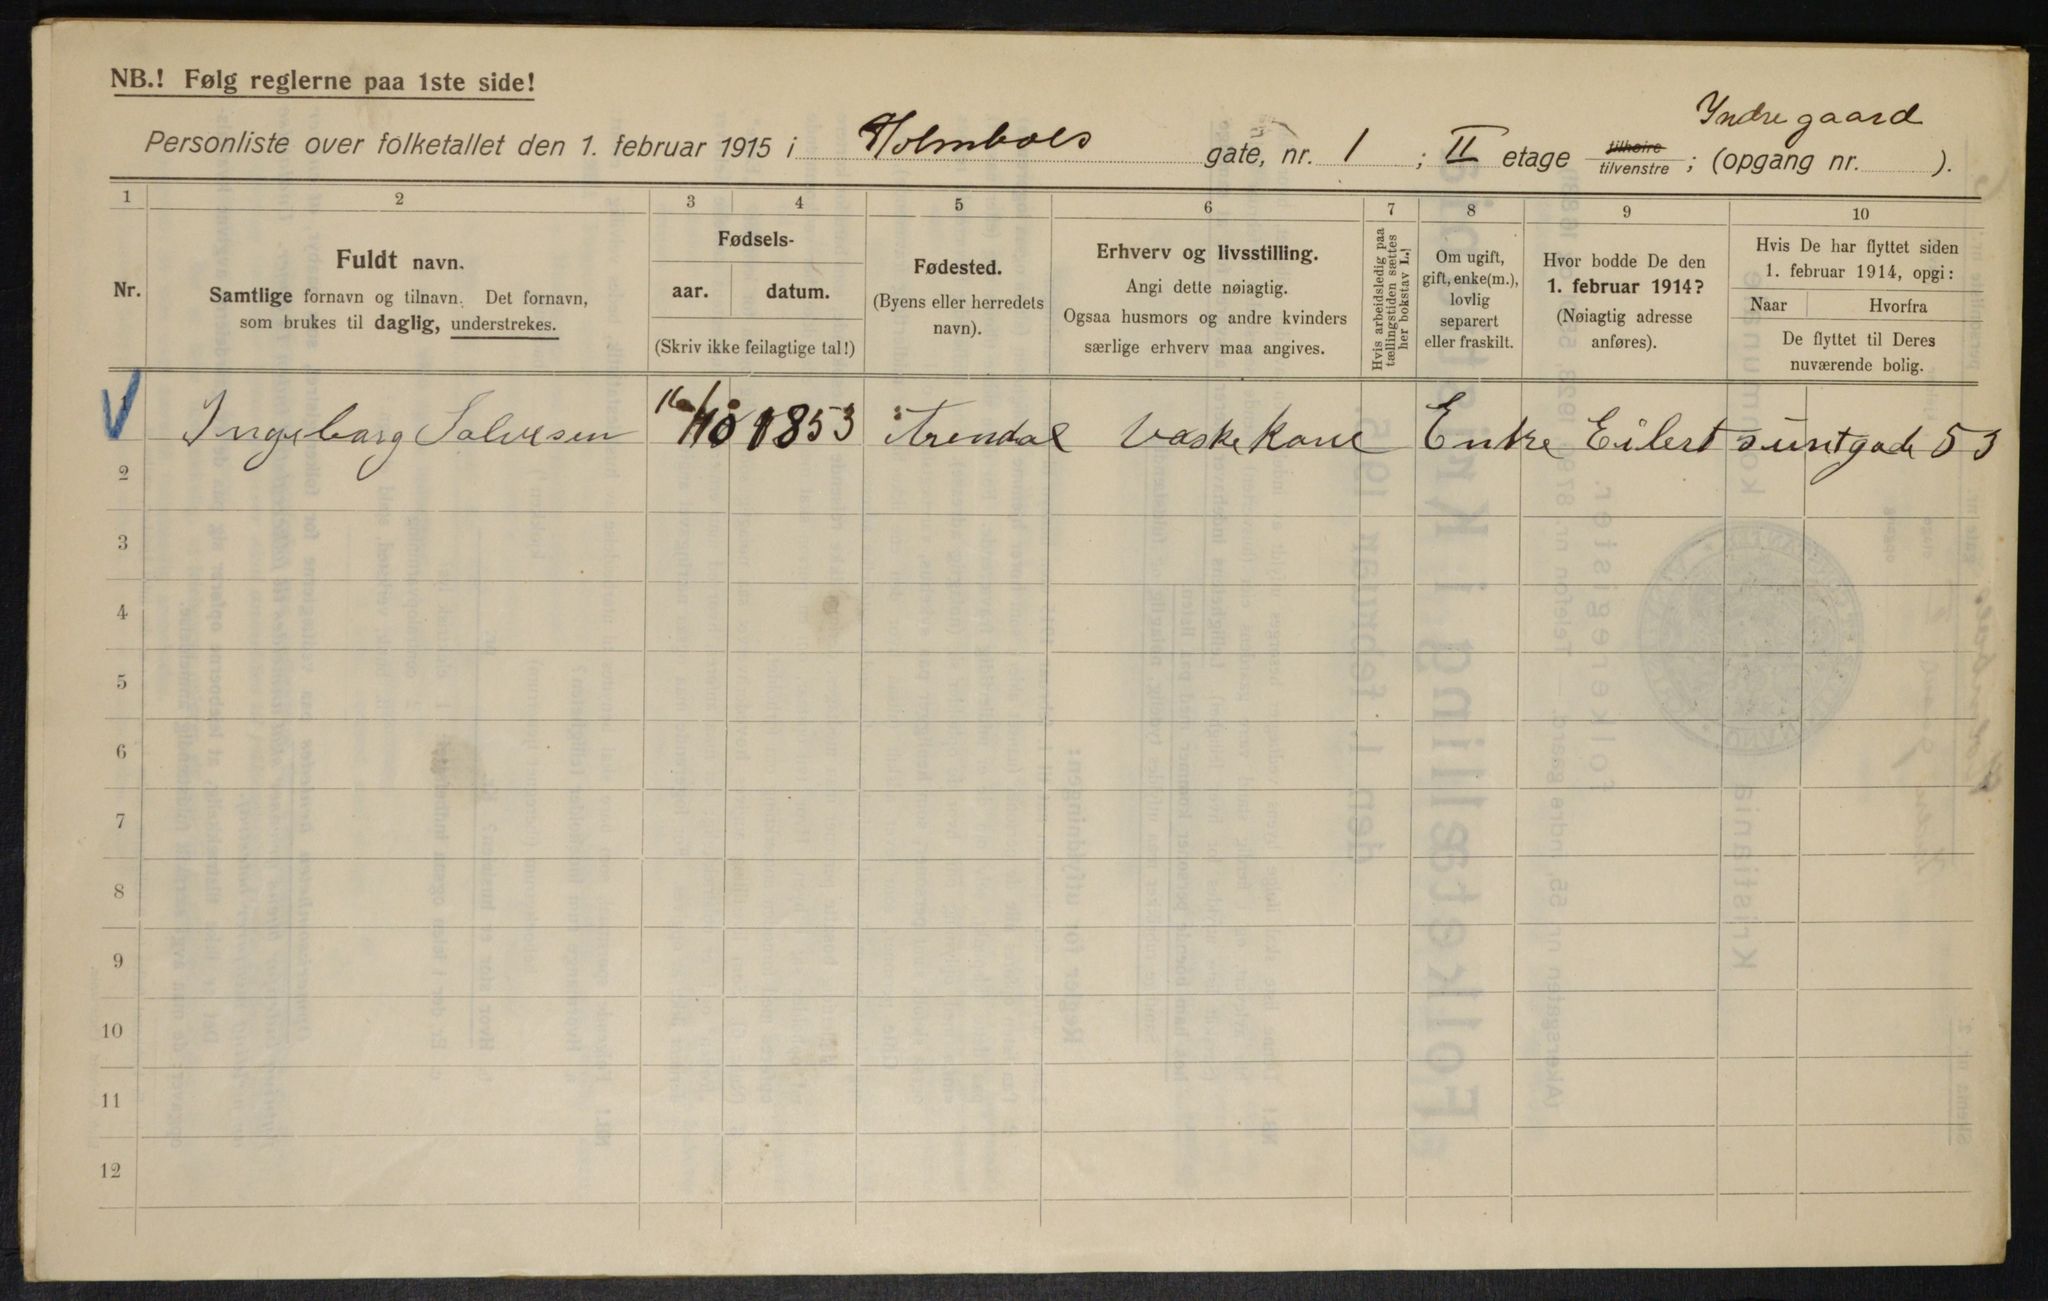 NB.! Følg reglerne paa 1ste side!
Yndregaard
Personliste over folketallet den 1. februar 1915 i Holmboes gate, nr. 1 ; II etage tilhøire tilvenstre ; (opgang nr. ).
1 2 3 4 5 6 7 8 9 10
Nr.
Fuldt navn.
Samtlige fornavn og tilnavn. Det fornavn,
som brukes til daglig, understrekes.
Fødsels-
aar. datum.
(Skriv ikke feilagtige tal!)
Fødested.
(Byens eller herredets
navn).
Erhverv og livsstilling.
Angi dette nøiagtig.
Ogsaa husmors og andre kvinders
særlige erhverv maa angives.
Hvis arbeidsledig paa
tællingstiden sættes
her bokstav L.!
Om ugift,
gift, enke(m.),
lovlig
separert
eller fraskilt.
Hvor bodde De den
1. februar 1914?
(Nøiagtig adresse
anføres).
Hvis De har flyttet siden
1. februar 1914, opgi:
Naar Hvorfra
De flyttet til Deres
nuværende bolig.
Ingeborg Salvesen 16/10 1853 Arendal Vaskekone Enke Eilert suntgade 53
2
3
4
5
6
7
8
9
10
11
12